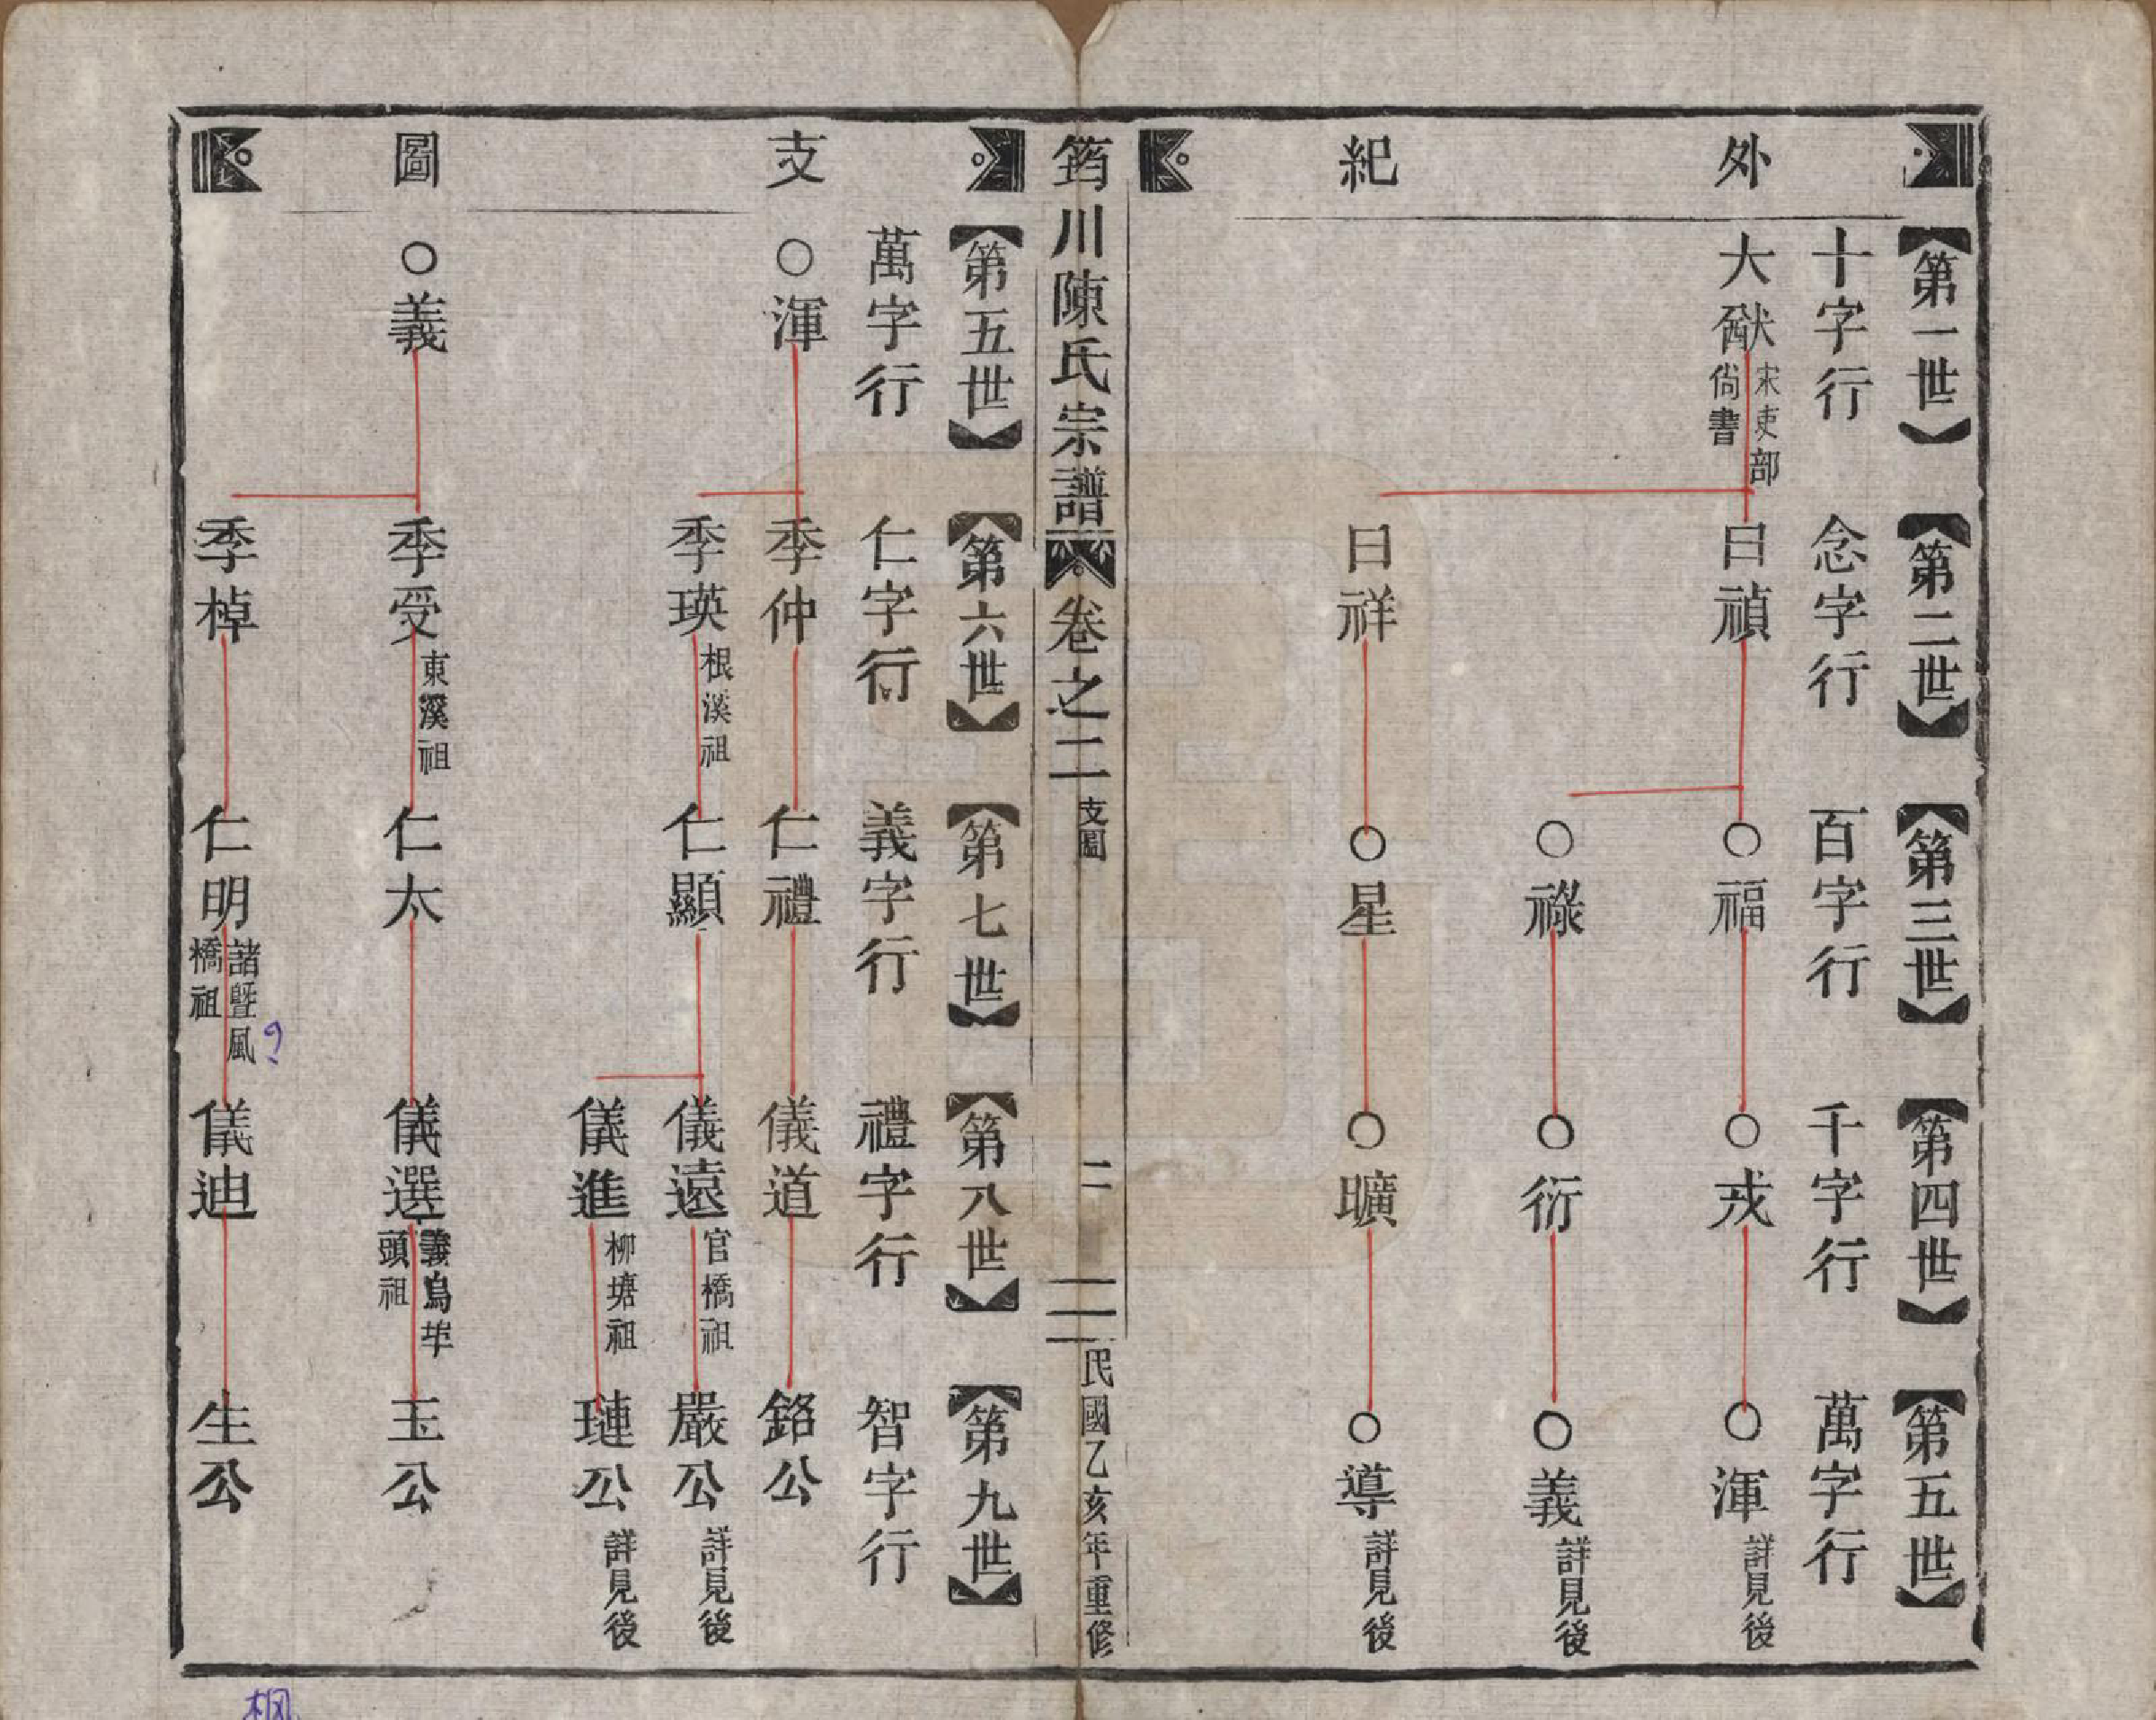 外紀
第一世
十字行
大猷 宋吏部尙書
第二世
念字行
曰禎
曰祥
第三世
百字行
○福
○祿
○星
第四世
千字行
○戎
○衍
○曠
第五世
萬字行
○渾 詳見後
○義 詳見後
○導 詳見後
筠川陳氏宗譜 卷之二 支圖 二 民國乙亥年重修
支圖
第五世
萬字行
○渾
○義
第六世
仁字行
季仲
季瑛 根溪祖
季受 東溪祖
季棹
第七世
義字行
仁禮
仁顯
仁太
仁明 諸暨風橋祖
?
第八世
禮字行
儀道
儀遠 官橋祖
儀進 柳塘祖
儀選 義烏芉頭祖
儀迪
第九世
智字行
銘公
嚴公 詳見後
璉公 詳見後
玉公
生公
枫